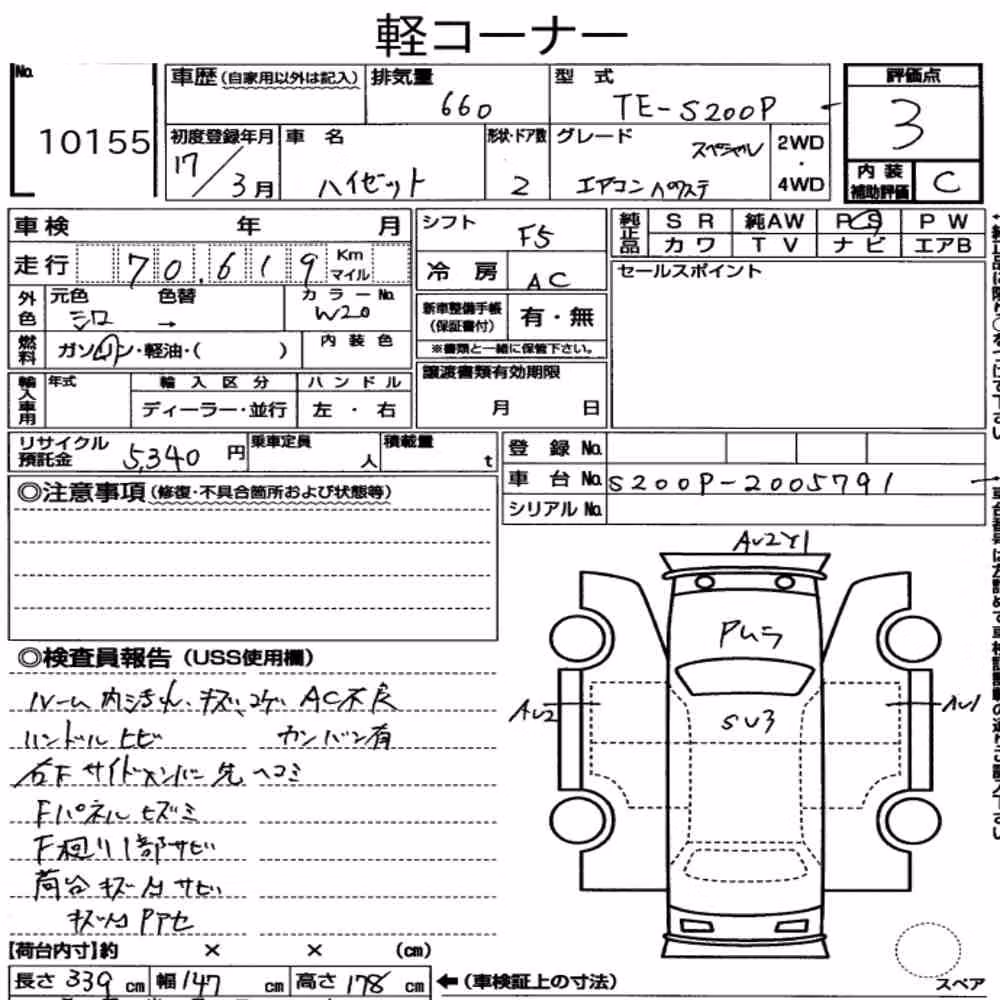 軽コーナー
No. 10155
車歴 (自家用以外は記入)
排気量 660
型式 TE-S200P
評価点 3
初度登録年月 17/3月
車名 ハイゼット
形状・ドア数 2
グレード スペシャル
エアコン パワステ
2WD・4WD
内装補助評価 C
車検 年 月
シフト F5
純正品 SR 純AW PS PW
カワ TV ナビ エアB
走行 70,619 Km マイル
冷房 AC
セールスポイント
外色 元色 シロ 色替 → カラーNo. W20
新車整備手帳(保証書付) 有・無
※書類と一緒に保管下さい。
燃料 ガソリン・軽油・( ) 内装色
譲渡書類有効期限
月 日
輸入車用 年式 輸入区分 ハンドル
ディーラー・並行 左・右
リサイクル預託金 5,340円 乗車定員 人 積載量 t
登録No.
車台No. S200P-2005791
シリアルNo.
◎注意事項(修復・不具合箇所および状態等)
AU2Y1
PUラ
SU3
AU2
AU1
◎検査員報告(USS使用欄)
ルーム内汚れ、キズ、コゲ AC不良
ハンドルヒビ カンバン有
右Fサイドメンバー先ヘコミ
Fパネルヒズミ
F廻り1部サビ
荷台キズ凹サビ
キズ凹Pアセ
[荷台内寸]約 × × (cm)
長さ 339cm 幅 147cm 高さ 178cm ←(車検証上の寸法)
スペア